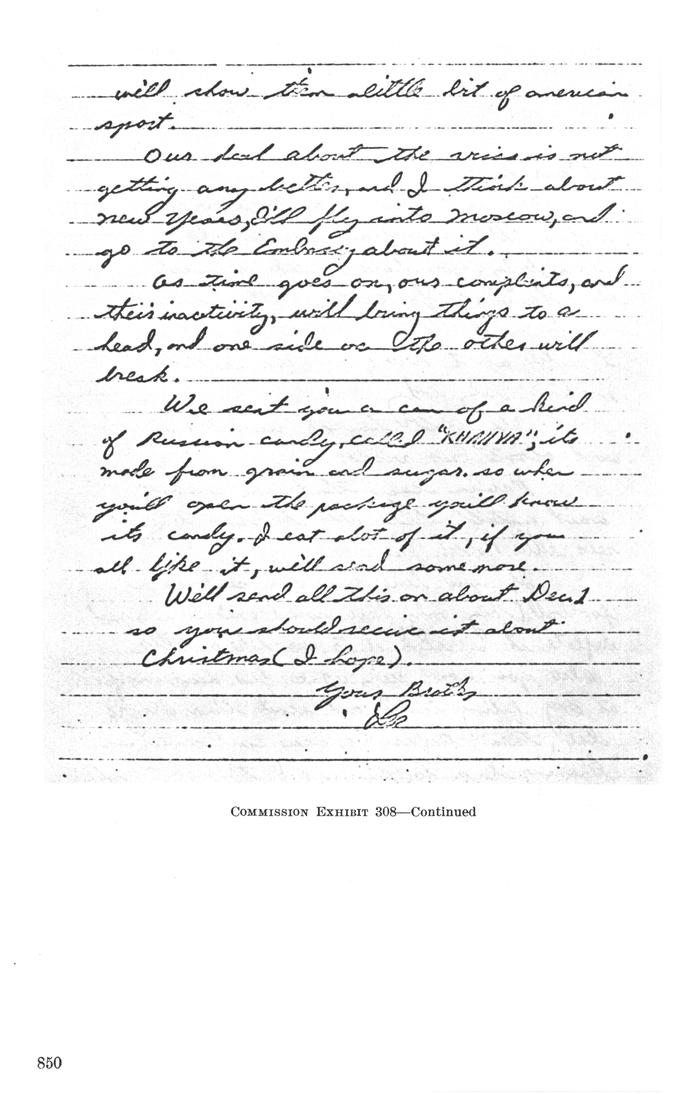 will show them alittle bit of american
sport.
Our deal about the visas is not
getting any better, and I think about
new years, I'll fly into Moscow, and
go to the Embassy about it.
as time goes on, our complints, and
their inactivity, will bring things to a
head, and one side or the other will
break.
We sent you a can of a kind
of Russian candy, called "KHALVA", its
made from grain and sugar. so when
you'll open the package you'll know
its candy. I eat alot of it, if you
all like it, we'll send some more.
We'll send all this on about Dec. 1
so you should recive it about
Christmas (I hope).
Your Brother
Lee
COMMISSION EXHIBIT 308—Continued
850